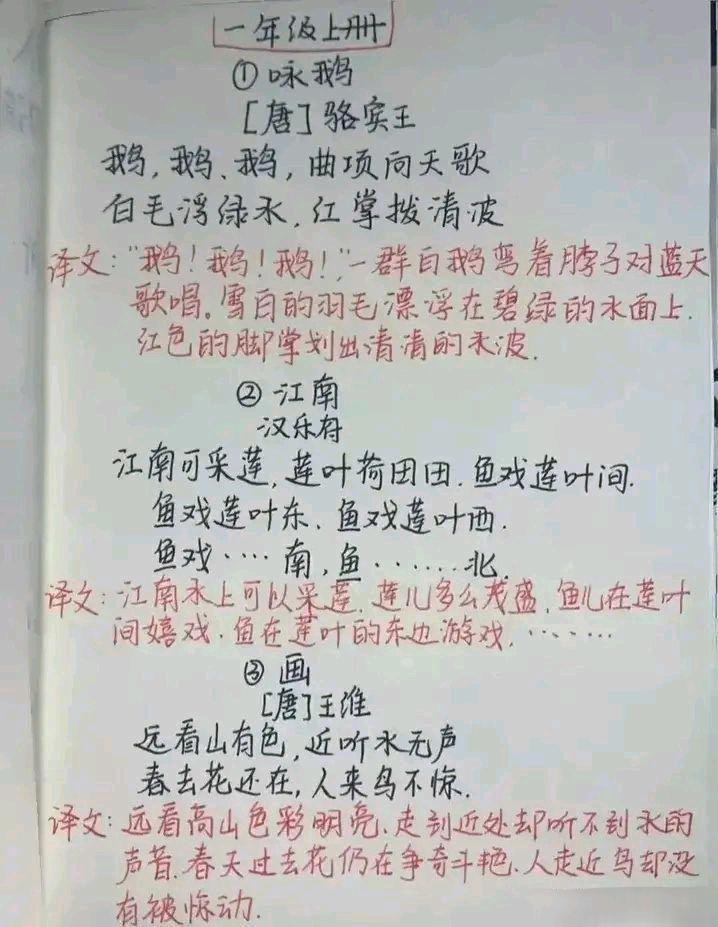 一年级上册
① 咏鹅
[唐] 骆宾王
鹅,鹅、鹅,曲项向天歌
白毛浮绿水,红掌拨清波
译文:"鹅!鹅!鹅!,"一群白鹅弯着脖子对蓝天
歌唱。雪白的羽毛漂浮在碧绿的水面上.
红色的脚掌划出清清的水波.
② 江南
汉乐府
江南可采莲,莲叶荷田田.鱼戏莲叶间.
鱼戏莲叶东、鱼戏莲叶西.
鱼戏····南,鱼······北.
译文:江南水上可以采莲.莲儿多么茂盛,鱼儿在莲叶
间嬉戏.鱼在莲叶的东边游戏,······
③ 画
[唐]王维
远看山有色,近听水无声
春去花还在,人来鸟不惊.
译文:远看高山色彩明亮、走到近处却听不到水的
声音.春天过去花仍在争奇斗艳.人走近鸟却没
有被惊动.